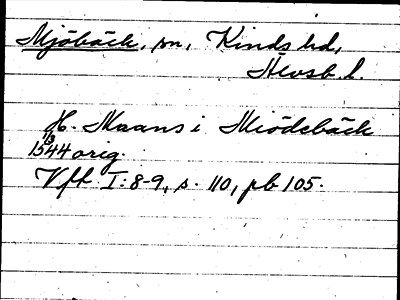 Mjöbäck, sn, Kinds hd,
Älvsb. l.
H. Maans i Miödebäck
1/3
1544 orig.
Vft I:8-9, s. 110, pb 105.